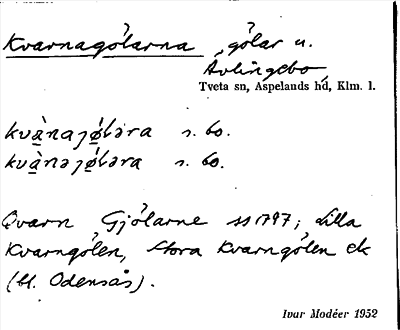 Kvarnagölarna, gölar u.
Övlingebo,
Tveta sn, Aspelands hd, Klm. l.
kvànajö́lǝra s. bo.
kvànǝjö́lǝra s. bo.
Qvarn Gjölarne SS 1797; Lilla
Kvarngölen, Stora Kvarngölen ek
(bl. Odensås).
Ivar Modéer 1952